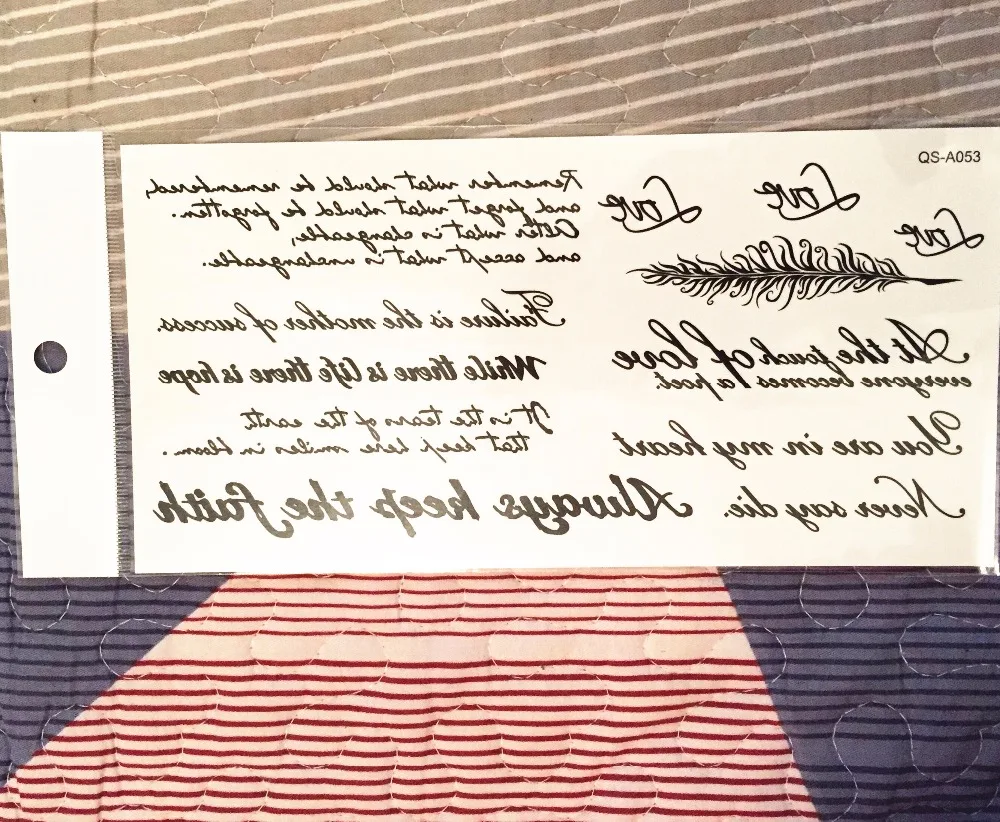 QS-A053
Love
Love
Love
Remember what should be remembered,
and forget what should be forgotten.
Alter what is changeable,
and accept what is unchangeable.
Failure is the mother of success.
While there is life there is hope
It is the tears of the earth
that keep here smiles in bloom.
Always keep the faith
At the touch of love
everyone becomes a poet.
You are in my heart
Never say die.